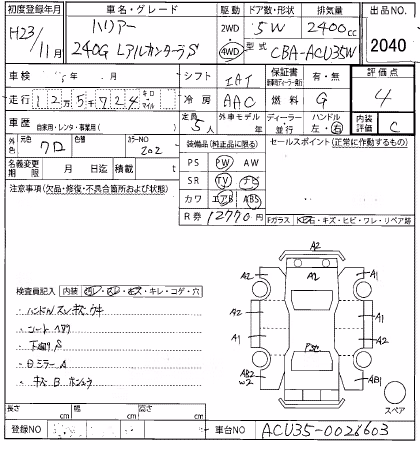 初度登録年月
車名・グレード
駆動
ドア数・形状
排気量
出品NO.
H23/11月
ハリアー
240G Lアルカンターラ S
2WD
4WD
5W
2400cc
型式
CBA-ACU35W
2040
車検
年 月
シフト
IAT
保証書
有・無
評価点
4
走行
12万5千724
キロ
マイル
冷房
AAC
燃料
G
車歴
自家用・レンタ・事業用( )
定員
5人
外車モデル
年
ディーラー
並行
ハンドル
左・右
内装評価
C
外色
元色
クロ
色替
カラーNO
202
装備品(純正品に限る)
セールスポイント(正常に作動するもの)
名義変更期限
月 日迄
積載
t
PS
PW
AW
注意事項(欠品・修復・不具合箇所および状態)
SR
TV
ナビ
カワ
エアB
ABS
R券
12770円
Fガラス
石・キズ・ヒビ・ワレ・リペア跡
検査員記入
内装
汚レ・スレ・キズ・キレ・コゲ・穴
・ハンドル スレ キズ ウキ
・シート
・下廻り S
・ミラー A
・
A2
A2
A1
A1
A2
A1
A1
A2
AB2
W2
AB1
スペア
長さ
cm
幅
cm
高さ
cm
登録NO
車台NO
ACU35-0026603